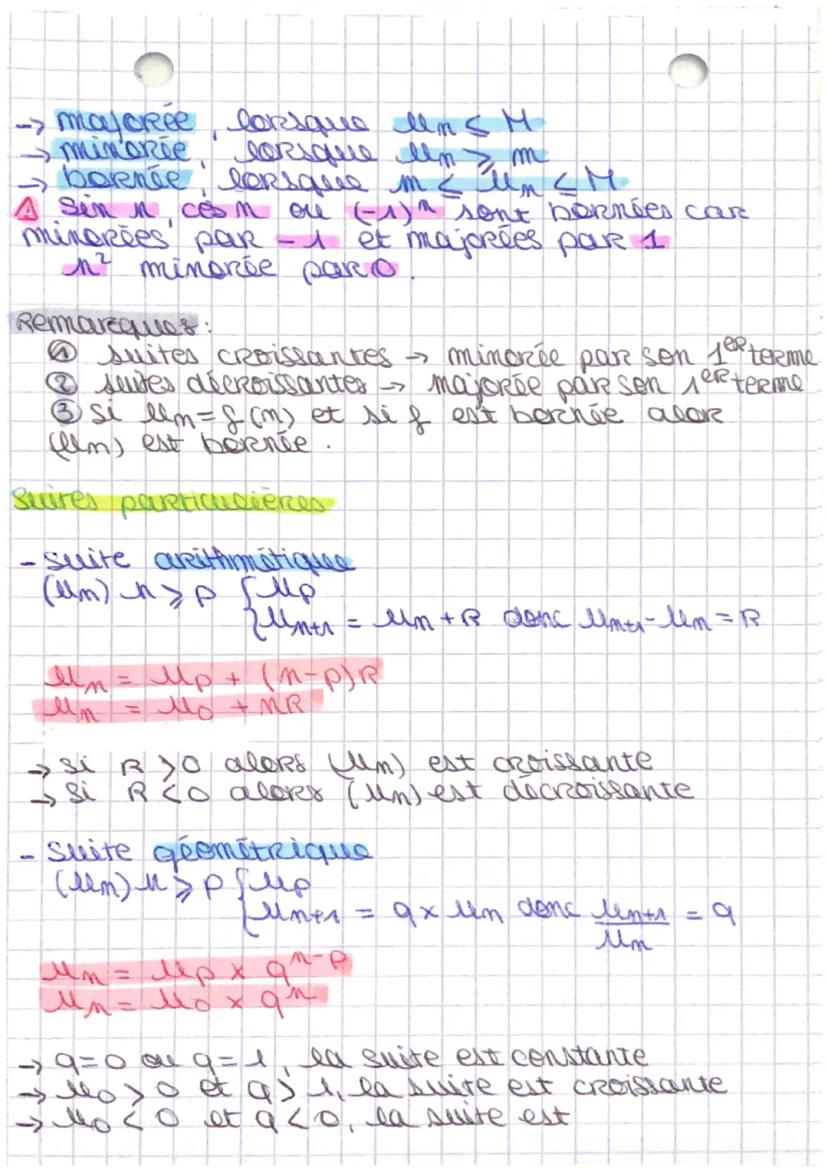 → majorée, lorsque Un ≤ M
→ minorée, lorsque Un ≥ m
→ bornée, lorsque m ≤ Un ≤ M
⚠ sin n, cos n ou (-1)ⁿ sont bornées car
minorées par -1 et majorées par 1
n² minorée par 0.
Remarques :
① suites croissantes → minorée par son 1er terme
② suites décroissantes → majorée par son 1er terme
③ si Un = f(n) et si f est bornée alor
(Un) est bornée.
Suites particulières
- suite arithmétique
(Un) n ≥ p { Up
Un+1 = Un + R donc Un+1 - Un = R
Un = Up + (n-p)R
Un = U0 + nR
→ si R > 0 alors (Un) est croissante
→ si R < 0 alors (Un) est décroissante
- suite géométrique
(Un) n ≥ p { Up
Un+1 = q × Un donc Un+1 / Un = q
Un = Up × qⁿ⁻ᵖ
Un = U0 × qⁿ
→ q=0 ou q=1, la suite est constante
→ U0 > 0 et q > 1, la suite est croissante
→ U0 < 0 et q < 0, la suite est